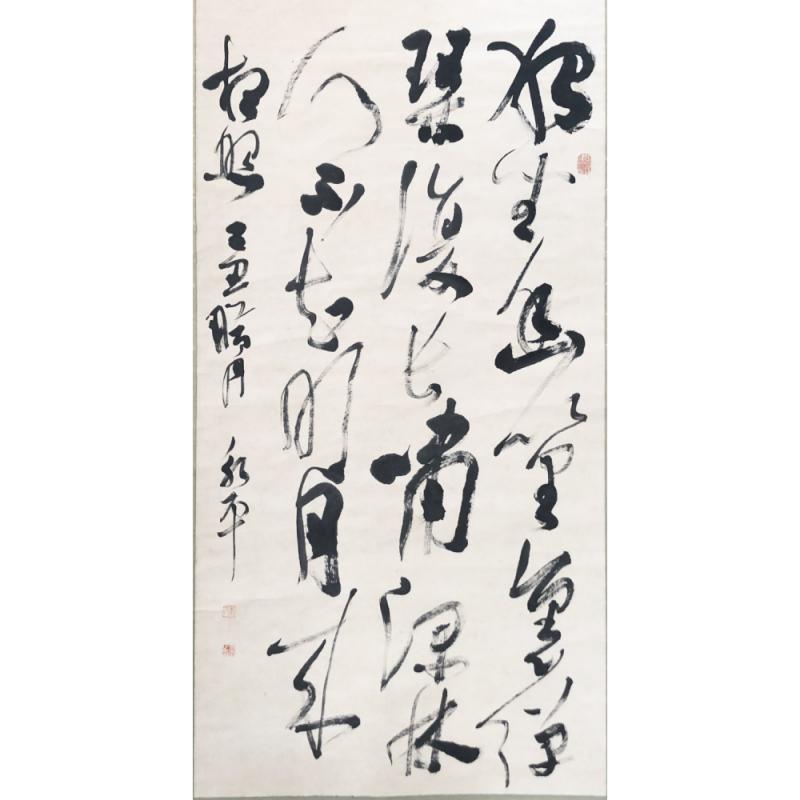 獨坐幽篁裏彈
琴復長嘯深林
人不知明月來
相照 己丑臘月 永平